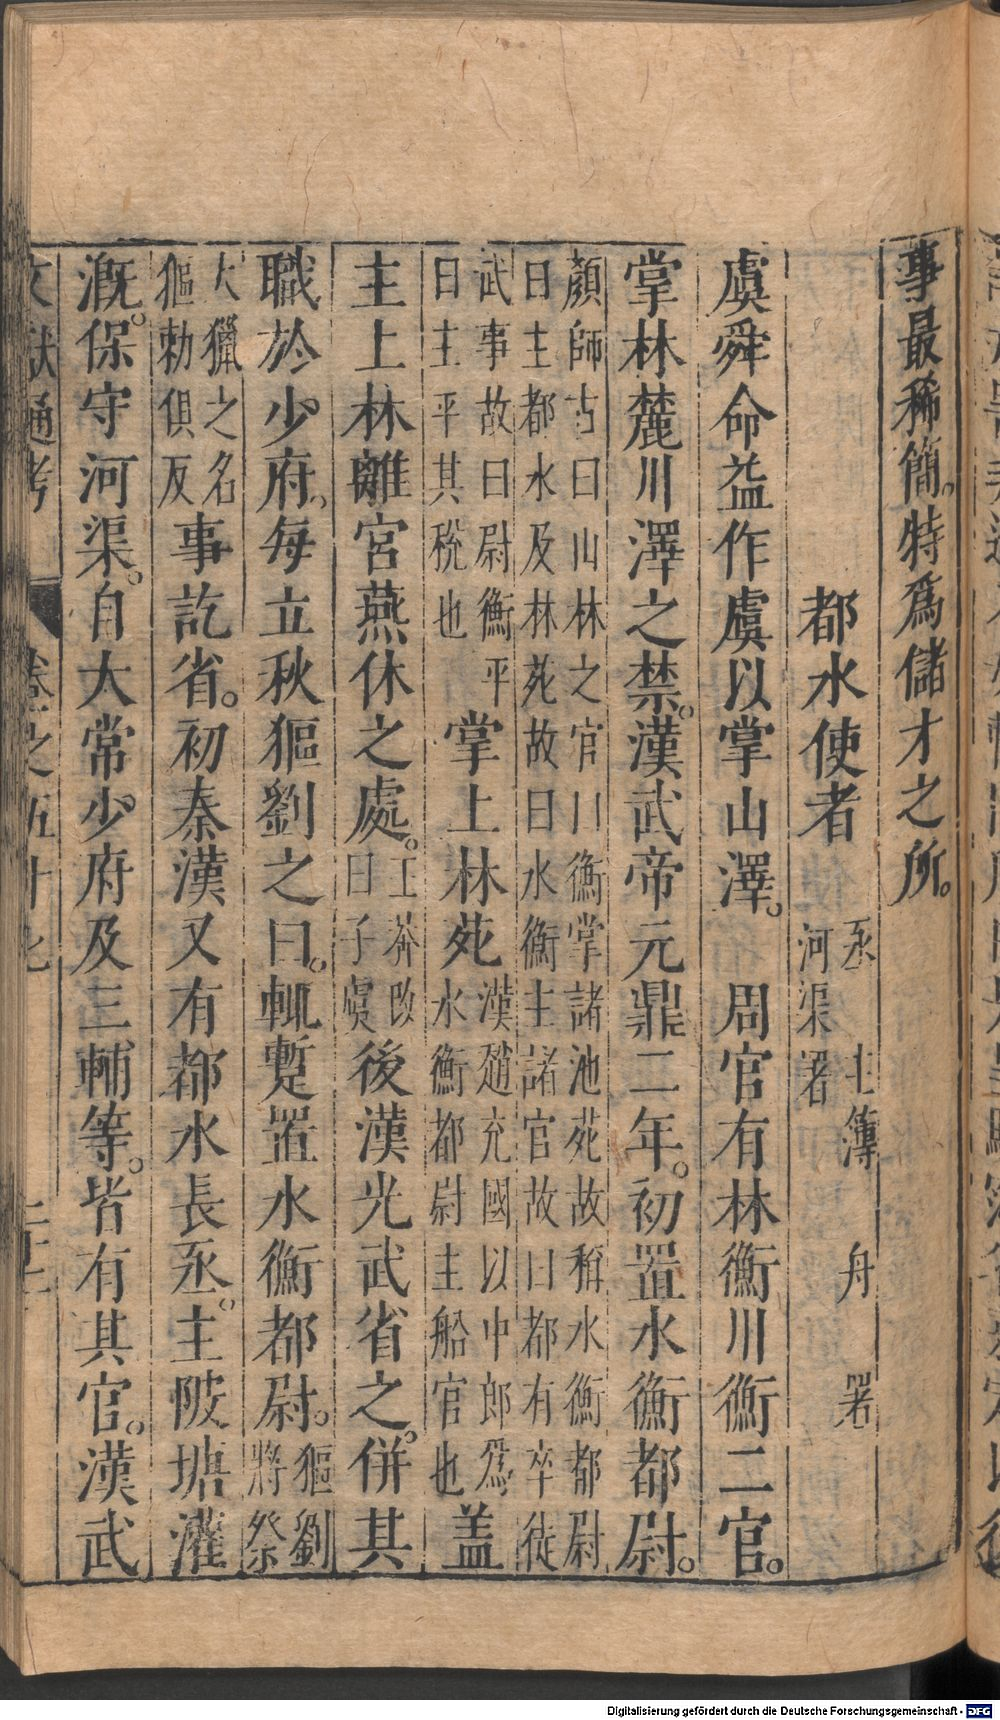 事最稀簡。特爲儲才之所。
都水使者 丞 主簿 舟署
河渠署
虞舜命益作虞以掌山澤。周官有林衡川衡二官。
掌林麓川澤之禁。漢武帝元鼎二年。初置水衡都尉。
顏師古曰山林之官曰衡掌諸池苑故稱水衡都尉
曰主都水及林苑故曰水衡主諸官故曰都有卒徒
武事故曰尉衡平
曰主平其稅也
掌上林苑
漢趙充國以中郎爲
水衡都尉主船官也
盖
主上林離宮燕休之處。
王莽改
曰子虞
後漢光武省之。併其
職於少府。每立秋貙劉之日。輒蹔置水衡都尉。
貙劉
將祭
大獵之名
貙勅俱反
事訖省。初秦漢又有都水長丞。主陂塘灌
溉。保守河渠。自大常少府及三輔等。皆有其官。漢武
文獻通考 卷之五十七
Digitalisierung gefördert durch die Deutsche Forschungsgemeinschaft - DFG